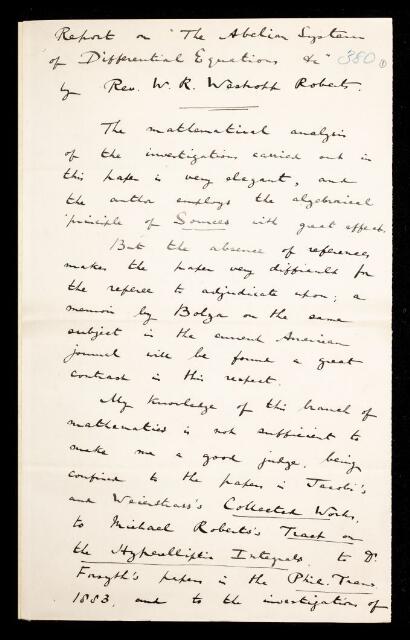 Report on "The Abelian System
of Differential Equations &c" 380 1
by Rev. W. R. Westropp Roberts.
The mathematical analysis
of the investigations carried out in
this paper is very elegant, and
the author employs the algebraical
principle of Sources with great effect.
But the absence of references
makes the paper very difficult for
the referee to adjudicate upon; a
memoir by Bolza on the same
subject in the current American
Journal will be found a great
contrast in this respect.
My knowledge of this branch of
mathematics is not sufficient to
make me a good judge, being
confined to the papers in Jacobi's
and Weierstrass's Collected Works,
to Michael Roberts's Tract on
the Hyperelliptic Integrals, to Dr.
Forsyth's papers in the Phil. Trans.
1883, and to the investigations of